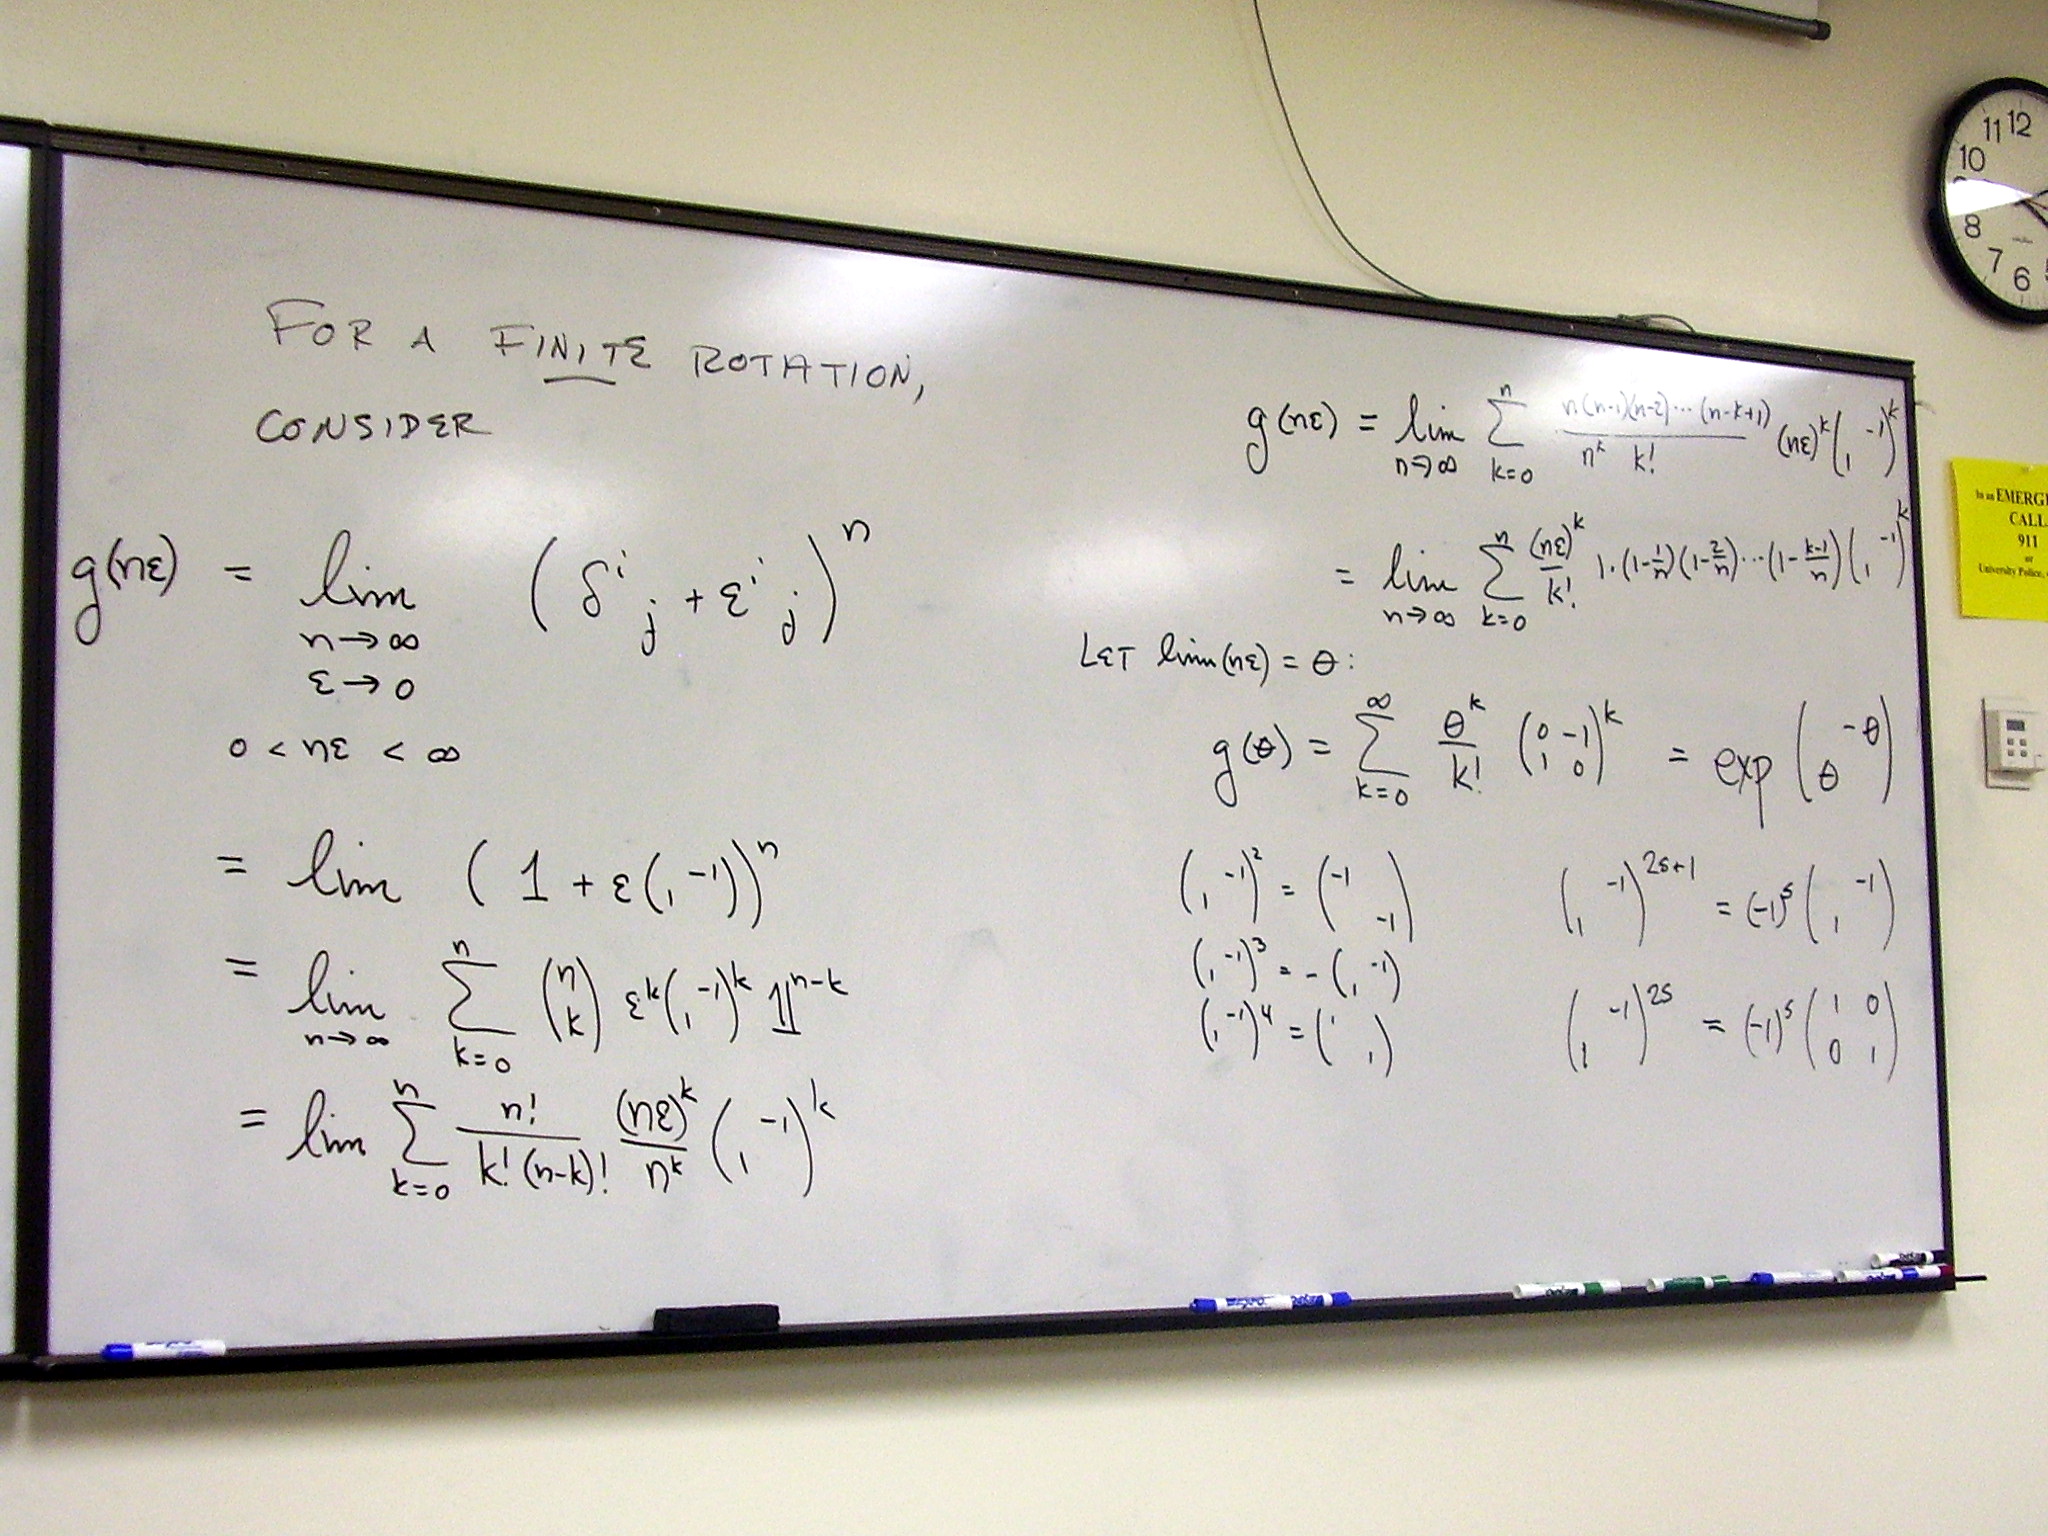 FOR A FINITE ROTATION,
CONSIDER
g(nε) = lim (δ^i_j + ε^i_j)^n
n→∞
ε→0
0 < nε < ∞
= lim (1 + ε(1 -1))^n
= lim n→∞ ∑_{k=0}^{n} (n k) ε^k (1 -1)^k 𝟙^{n-k}
= lim ∑_{k=0}^{n} n!/(k!(n-k)!) (nε)^k/n^k (1 -1)^k
g(nε) = lim n→∞ ∑_{k=0}^{n} n(n-1)(n-2)···(n-k+1)/(n^k k!) (nε)^k (1 -1)^k
= lim n→∞ ∑_{k=0}^{n} (nε)^k/k! 1·(1-1/n)(1-2/n)···(1-(k-1)/n) (1 -1)^k
LET lim(nε) = θ:
g(θ) = ∑_{k=0}^{∞} θ^k/k! (0 -1 1 0)^k = exp(-θ θ)
(-1 1)^2 = (-1 -1)
(1 -1)^3 = -(1 -1)
(1 -1)^4 = (1 1)
(-1 1)^{2s+1} = (-1)^s (-1 1)
(-1 1)^{2s} = (-1)^s (1 0 0 1)
11 12
10
8
7
6
In an EMERG
CALL
911
or
University Police,